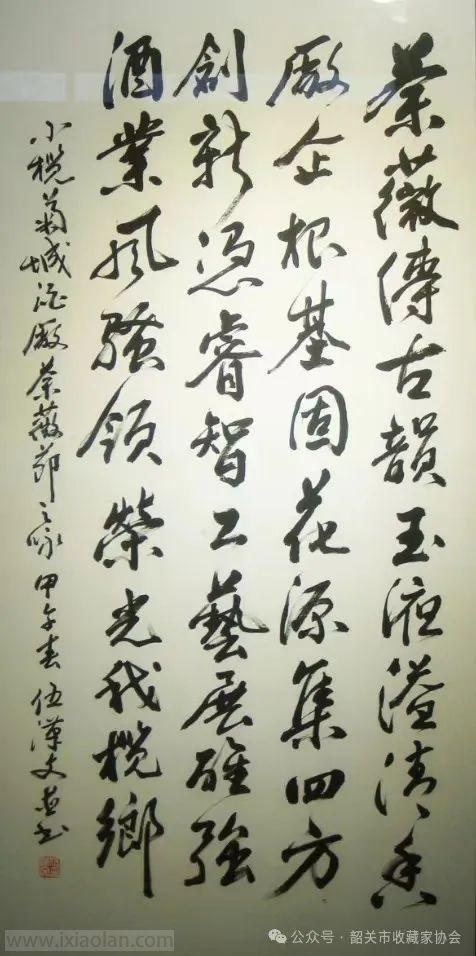 荼薇傳古韻玉液溢清香
廠企根基固花源集四方
創新憑睿智工藝展雄強
酒業風騷領榮光我欖鄉
小欖菊城酒廠荼薇節之咏甲午春伍漢文並書
www.ixiaolan.com
公众号·韶关市收藏家协会